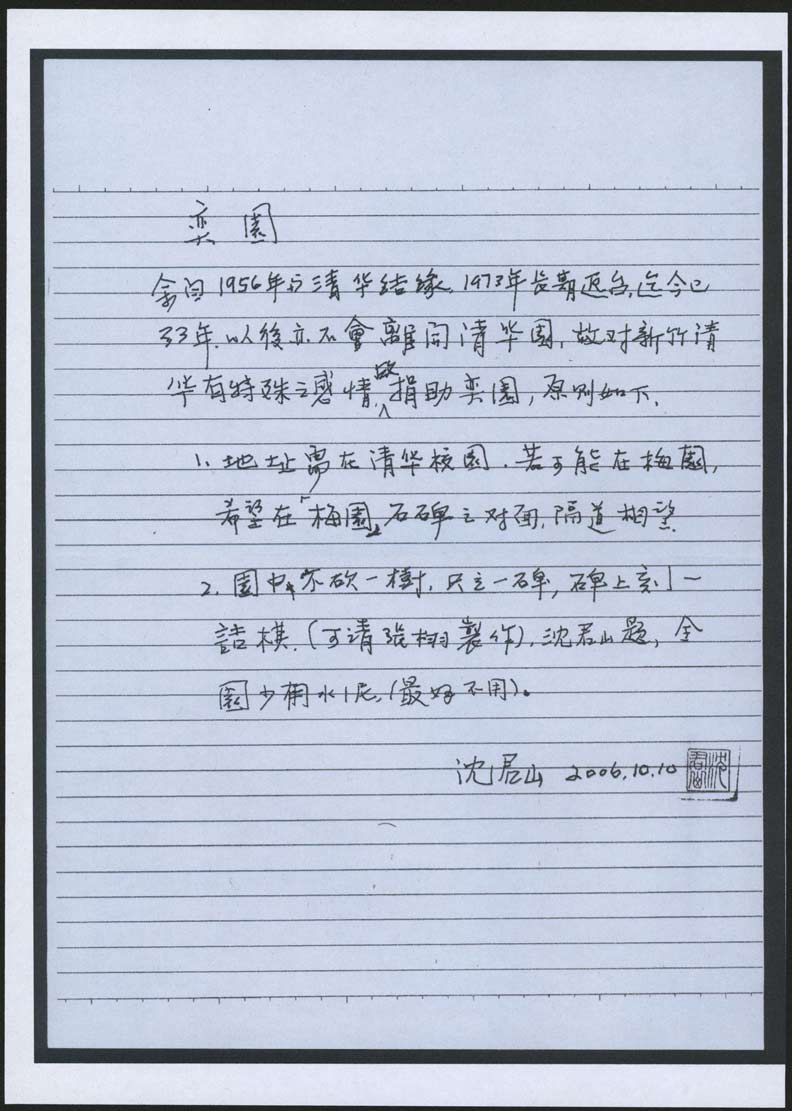 奕園
余自1956年与清华结缘,1973年長期返台,迄今已
33年.以後亦不會離開清华園,故对新竹清
华有特殊之感情,故捐助奕園,原则如下.
1. 地址需在清华校园.若可能在梅園,
希望在「梅園」石碑之对面,隔道相望
2. 園中不砍一樹.只立一碑,碑上刻一
詰棋.(可请张栩製作),沈君山题,全
園少用水泥,(最好不用)。
沈君山 2006.10.10